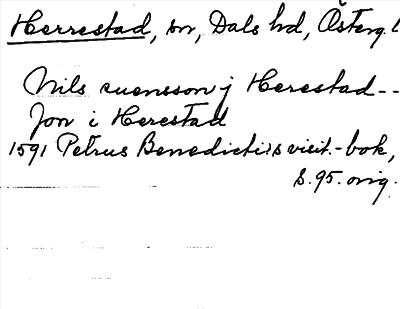 Herrestad, sn, Dals hd, Österg. l
Nils suensson j Herestad--
Jon i Herestad
1591 Petrus Benedicti:s visit.-bok,
S. 95. orig.